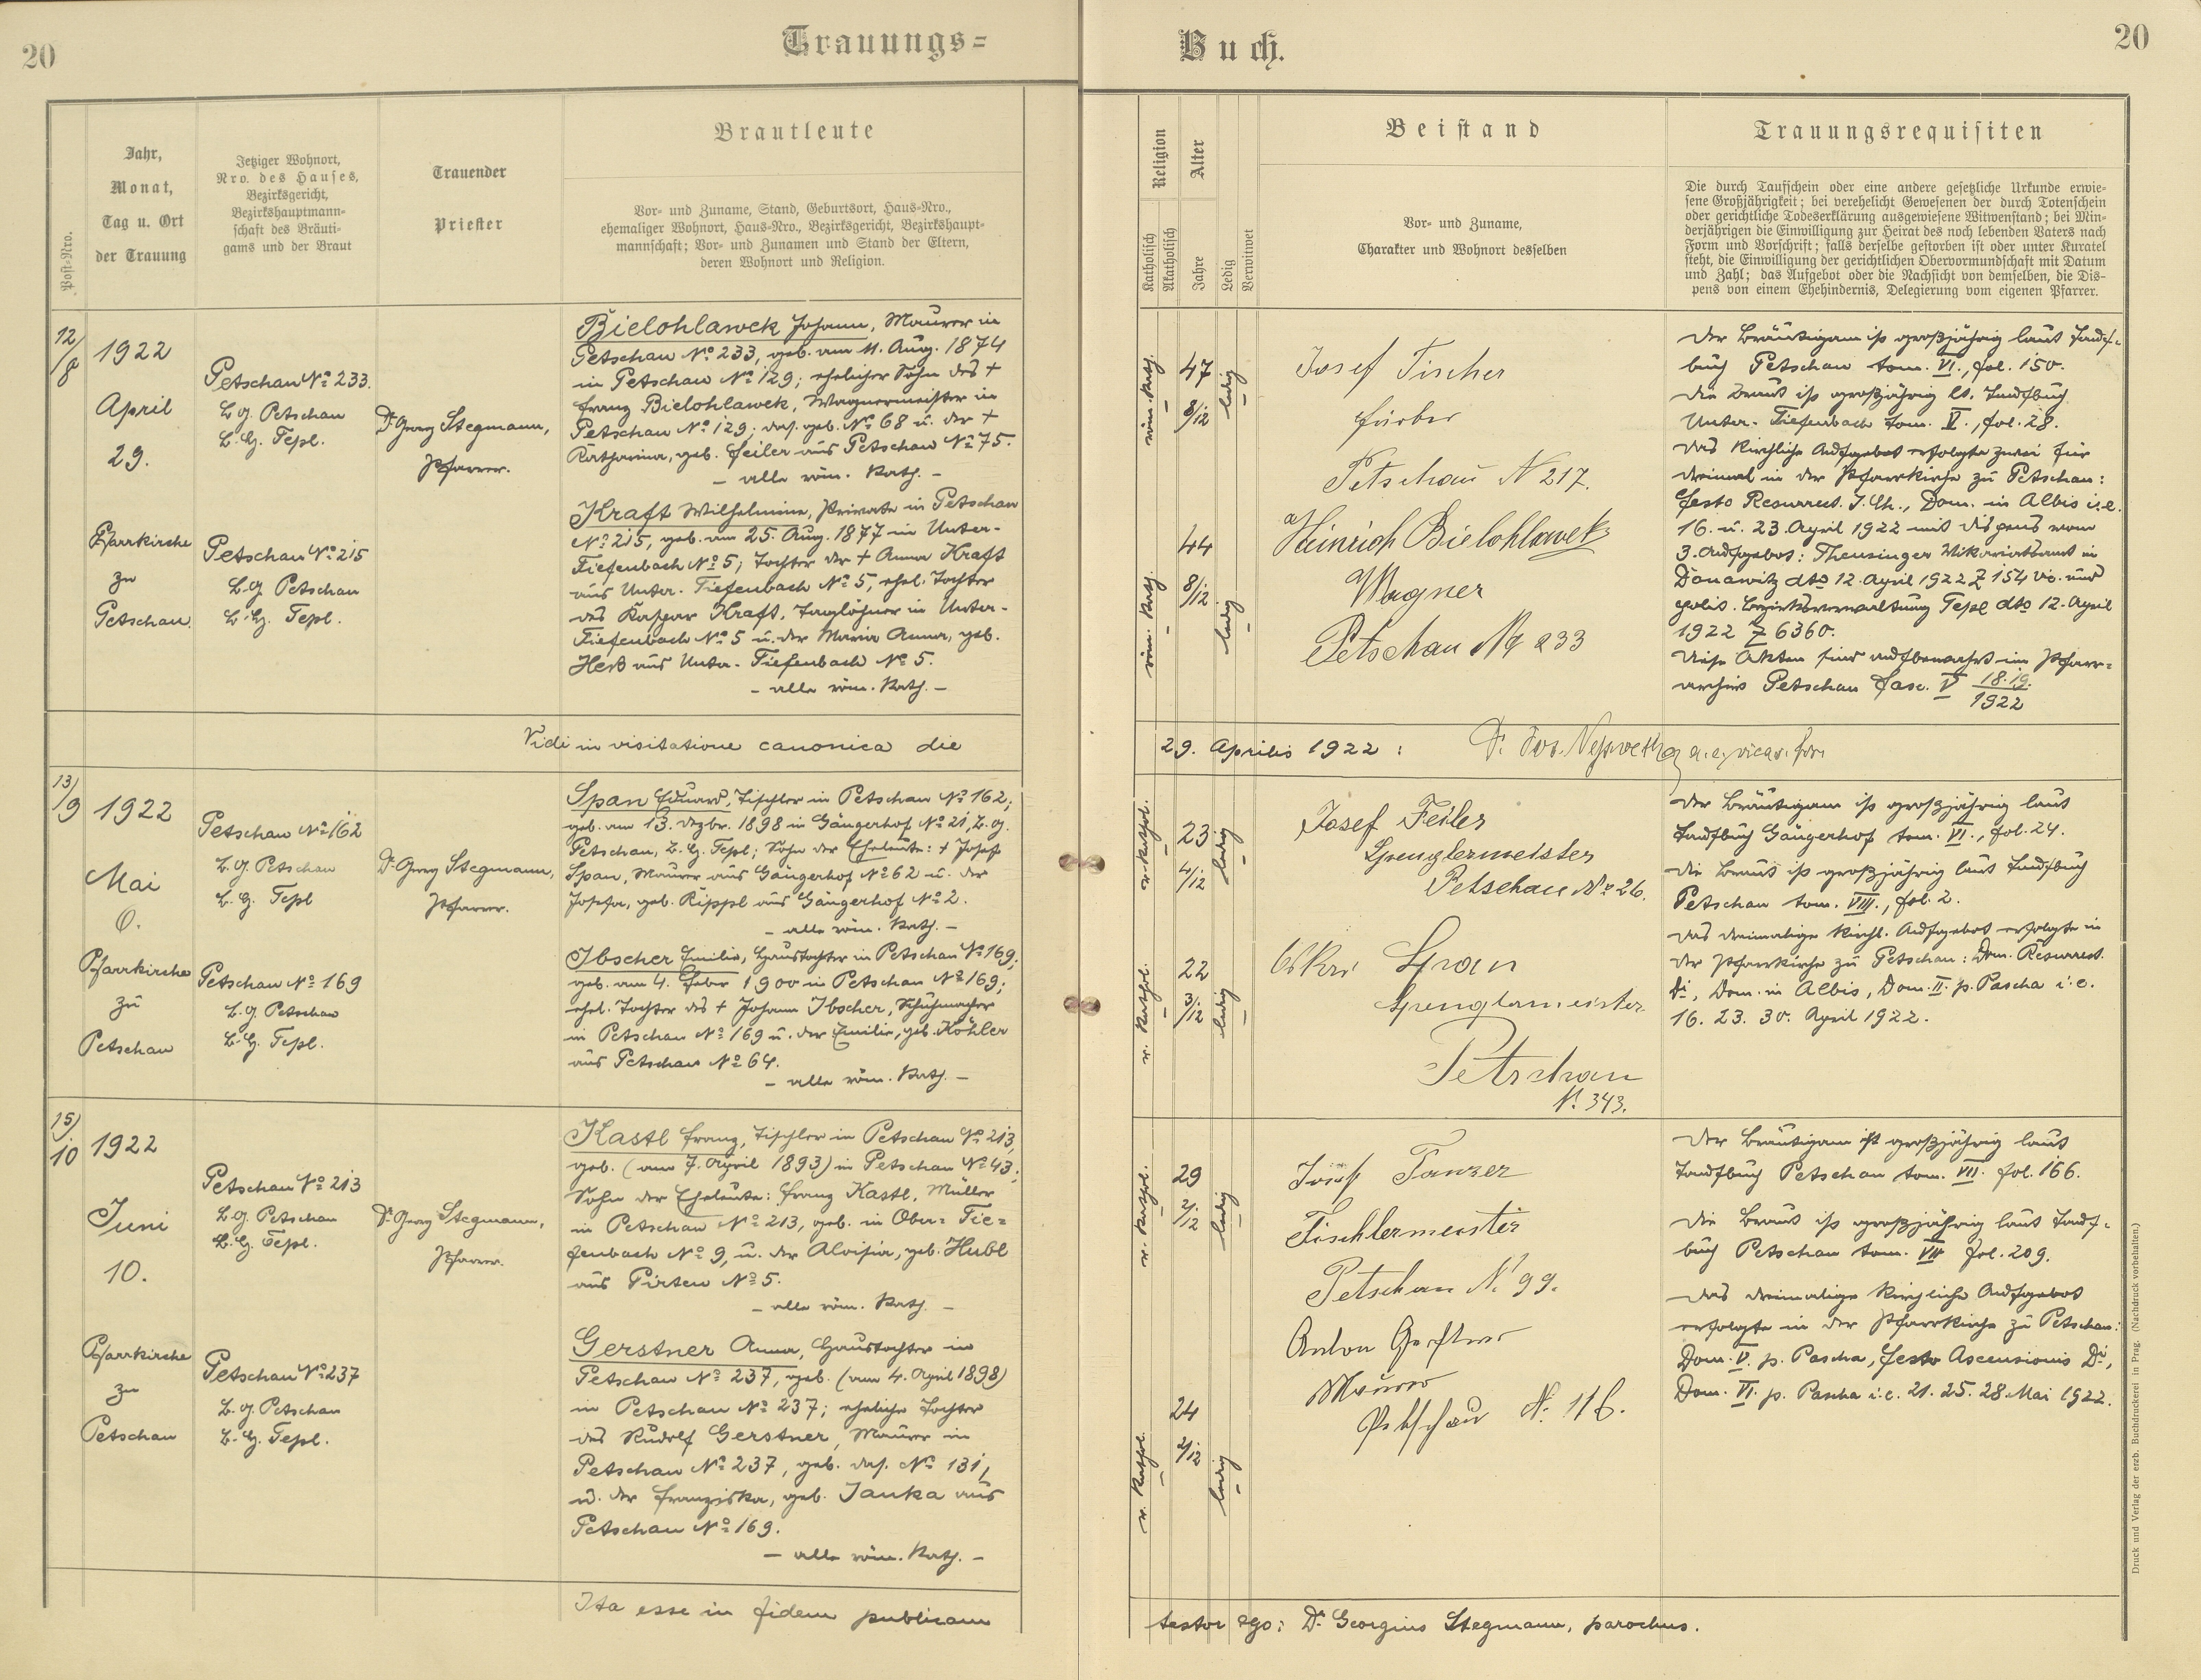 20
Trauungs=
Buch.
20
Post=Nro.
Jahr,
Monat,
Tag u. Ort
der Trauung
Jetziger Wohnort,
Nro. des Hauses,
Bezirksgericht,
Bezirkshauptmann=
schaft des Bräuti=
gams und der Braut
Trauender
Priester
Brautleute
Vor= und Zuname, Stand, Geburtsort, Haus=Nro.,
ehemaliger Wohnort, Haus=Nro., Bezirksgericht, Bezirkshaupt=
mannschaft; Vor= und Zunamen und Stand der Eltern,
deren Wohnort und Religion.
Religion
Katholisch
Akatholisch
Alter
Jahre
Ledig
Verwitwet
Beistand
Vor= und Zuname,
Charakter und Wohnort desselben
Trauungsrequisiten
Die durch Taufschein oder eine andere gesetzliche Urkunde erwie=
sene Großjährigkeit; bei verehelicht Gewesenen der durch Totenschein
oder gerichtliche Todeserklärung ausgewiesene Witwenstand; bei Min=
derjährigen die Einwilligung zur Heirat des noch lebenden Vaters nach
Form und Vorschrift; falls derselbe gestorben ist oder unter Kuratel
steht, die Einwilligung der gerichtlichen Obervormundschaft mit Datum
und Zahl; das Aufgebot oder die Nachsicht von demselben, die Dis=
pens von einem Ehehindernis, Delegierung vom eigenen Pfarrer.
12/8
1922
April
29.
Pfarrkirche
zu
Petschau.
Petschau No 233.
B.G. Petschau
B.H. Tepl.
Petschau No 215
B.G. Petschau
B.H. Tepl.
Dr Georg Stegmann,
Pfarrer.
Bielohlawek Johann, Maurer in
Petschau No 233, geb. am 11. Aug. 1874
in Petschau No 129; ehelicher Sohn des +
Franz Bielohlawek, Wagnermeister in
Petschau No 129; das. geb. No 68 u. der +
Katharina, geb. Feiler aus Petschau No 75.
- alle röm. Kath. -
Kraft Wilhelmine, Private in Petschau
No 215, geb. am 25. Aug. 1877 in Unter-
Tiefenbach No 5; Tochter der + Anna Kraft
aus Unter-Tiefenbach No 5, ehel. Tochter
des Kaspar Kraft, Taglöhner in Unter-
Tiefenbach No 5 u. der Maria Anna, geb.
Herß aus Unter-Tiefenbach No 5.
- alle röm. Kath. -
röm. Kath.
47
8/12
ledig
röm. Kath.
44
8/12
ledig
Josef Fischer
Färber
Petschau N 217.
Heinrich Bielohlawek
Wagner
Petschau No 233
Der Bräutigam ist großjährig laut Tauf=
buch Petschau tom. VI., fol. 150.
Die Braut ist großjährig lt. Taufbuch
Unter-Tiefenbach tom. V., fol. 28.
Das kirchliche Aufgebot erfolgte zwei für
dreimal in der Pfarrkirche zu Petschau:
Festo Resurrect. J. Ch., Dom. in Albis i.e.
16. u. 23. April 1922 mit Dispens vom
3. Aufgebot: Theusinger Vikariatsamt in
Donawitz dto 12. April 1922 Z 154 Vic. und
polit. Bezirksverwaltung Tepl dto 12. April
1922 Z 6360.
Diese Akten sind aufbewahrt im Pfarr=
archiv Petschau Fasc. V 18.19.
1922
Vidi in visitatione canonica die
29. Aprilis 1922 :
13/9
1922
Mai
6.
Pfarrkirche
zu
Petschau
Petschau No 162
B.G. Petschau
B.H. Tepl
Petschau No 169
B.G. Petschau
B.H. Tepl.
Dr Georg Stegmann,
Pfarrer.
Span Eduard, Tischler in Petschau No 162;
geb. am 13. Dezbr. 1898 in Gängerhof No 21, B.G.
Petschau, B.H. Tepl; Sohn der Eheleute: + Josef
Span, Maurer aus Gängerhof No 62 u. der
Josefa, geb. Rippl aus Gängerhof No 2.
- alle röm. Kath. -
Ibscher Emilie, Haustochter in Petschau No 169;
geb. am 4. Feber 1900 in Petschau No 169;
ehel. Tochter des + Johann Ibscher, Schuhmacher
in Petschau No 169 u. der Emilie, geb. Köhler
aus Petschau No 64.
- alle röm. Kath. -
r. Kathol.
23
4/12
ledig
r. Kathol.
22
3/12
ledig
Josef Feiler
Spenglermeister
Petschau No 26.
Oskar Span
Spenglermeister
Petschau
N. 343.
Der Bräutigam ist großjährig laut
Taufbuch Gängerhof tom. VI., fol. 24.
Die Braut ist großjährig laut Taufbuch
Petschau tom. VIII., fol. 2.
Das dreimalige kirchl. Aufgebot erfolgte in
der Pfarrkirche zu Petschau: Dom. Resurrect.
Di, Dom. in Albis, Dom. II. p. Pascha i.e.
16. 23. 30. April 1922.
15/10
1922
Juni
10.
Pfarrkirche
zu
Petschau
Petschau No 213
B.G. Petschau
B.H. Tepl.
Petschau No 237
B.G. Petschau
B.H. Tepl.
Dr Georg Stegmann,
Pfarrer.
Kastl Franz, Tischler in Petschau No 213,
geb. (am 7. April 1893) in Petschau No 43;
Sohn der Eheleute: Franz Kastl, Müller
in Petschau No 213, geb. in Ober= Tie=
fenbach No 9, u. der Aloisia, geb. Hubl
aus Pirten No 5.
- alle röm. Kath. -
Gerstner Anna, Haustochter in
Petschau No 237, geb. (am 4. April 1898)
in Petschau No 237; eheliche Tochter
des Rudolf Gerstner, Maurer in
Petschau No 237, geb. das. No 131,
u. der Franziska, geb. Janka aus
Petschau No 169.
- alle röm. Kath. -
r. Kathol.
29
2/12
ledig
r. Kathol.
24
2/12
ledig
Josef Tanzer
Tischlermeister
Petschau N. 99.
Anton Gerstner
Maurer
Petschau N. 116.
Der Bräutigam ist großjährig laut
Taufbuch Petschau tom. VII. fol. 166.
Die Braut ist großjährig laut Tauf=
buch Petschau tom. VII fol. 209.
Das dreimalige kirchliche Aufgebot
erfolgte in der Pfarrkirche zu Petschau:
Dom. V. p. Pascha, Festo Ascensionis Di,
Dom. VI. p. Pascha i.e. 21. 25. 28. Mai 1922.
Ita esse in fidem publicam
testor ego: Dr Georgius Stegmann, parochus.
Druck und Verlag der erzb. Buchdruckerei in Prag. (Nachdruck vorbehalten.)